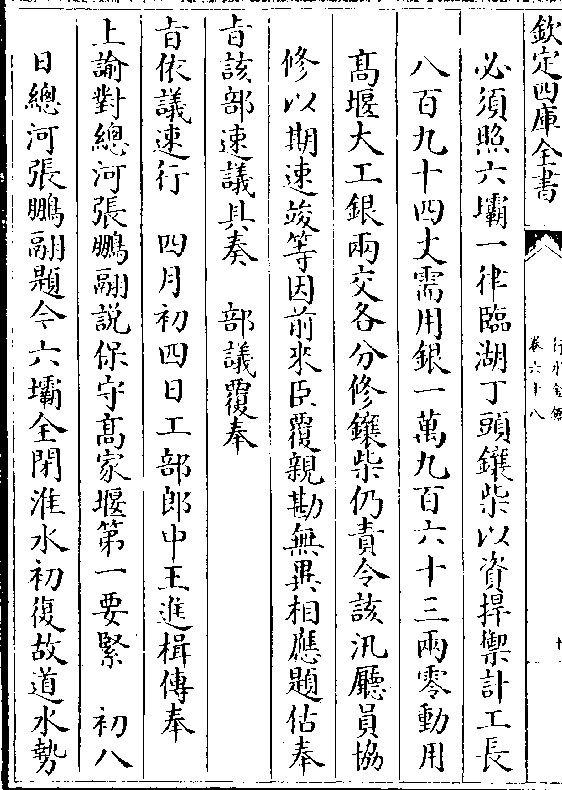 欽定四庫全書
行水金鑑
卷六十八
必須照六壩一律臨湖丁頭鑲柴以資捍禦計工長
八百九十四丈需用銀一萬九百六十三兩零動用
髙堰大工銀兩交各分修鑲柴仍責令該汛廳員協
修以期速竣等因前來臣覆親勘無異相應題估奉
㫖該部速議具奏　部議覆奉
㫖依議速行　四月初四日工部郎中王進楫傳奉
上諭對總河張鵬翮説保守髙家堰第一要緊　初八
日總河張鵬翮題今六壩全閉淮水初復故道水勢